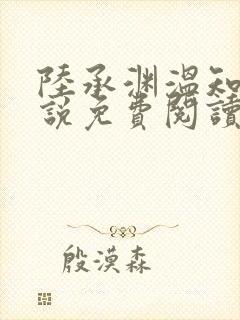 陸承淵溫知
說免費閱讀
殷漠森